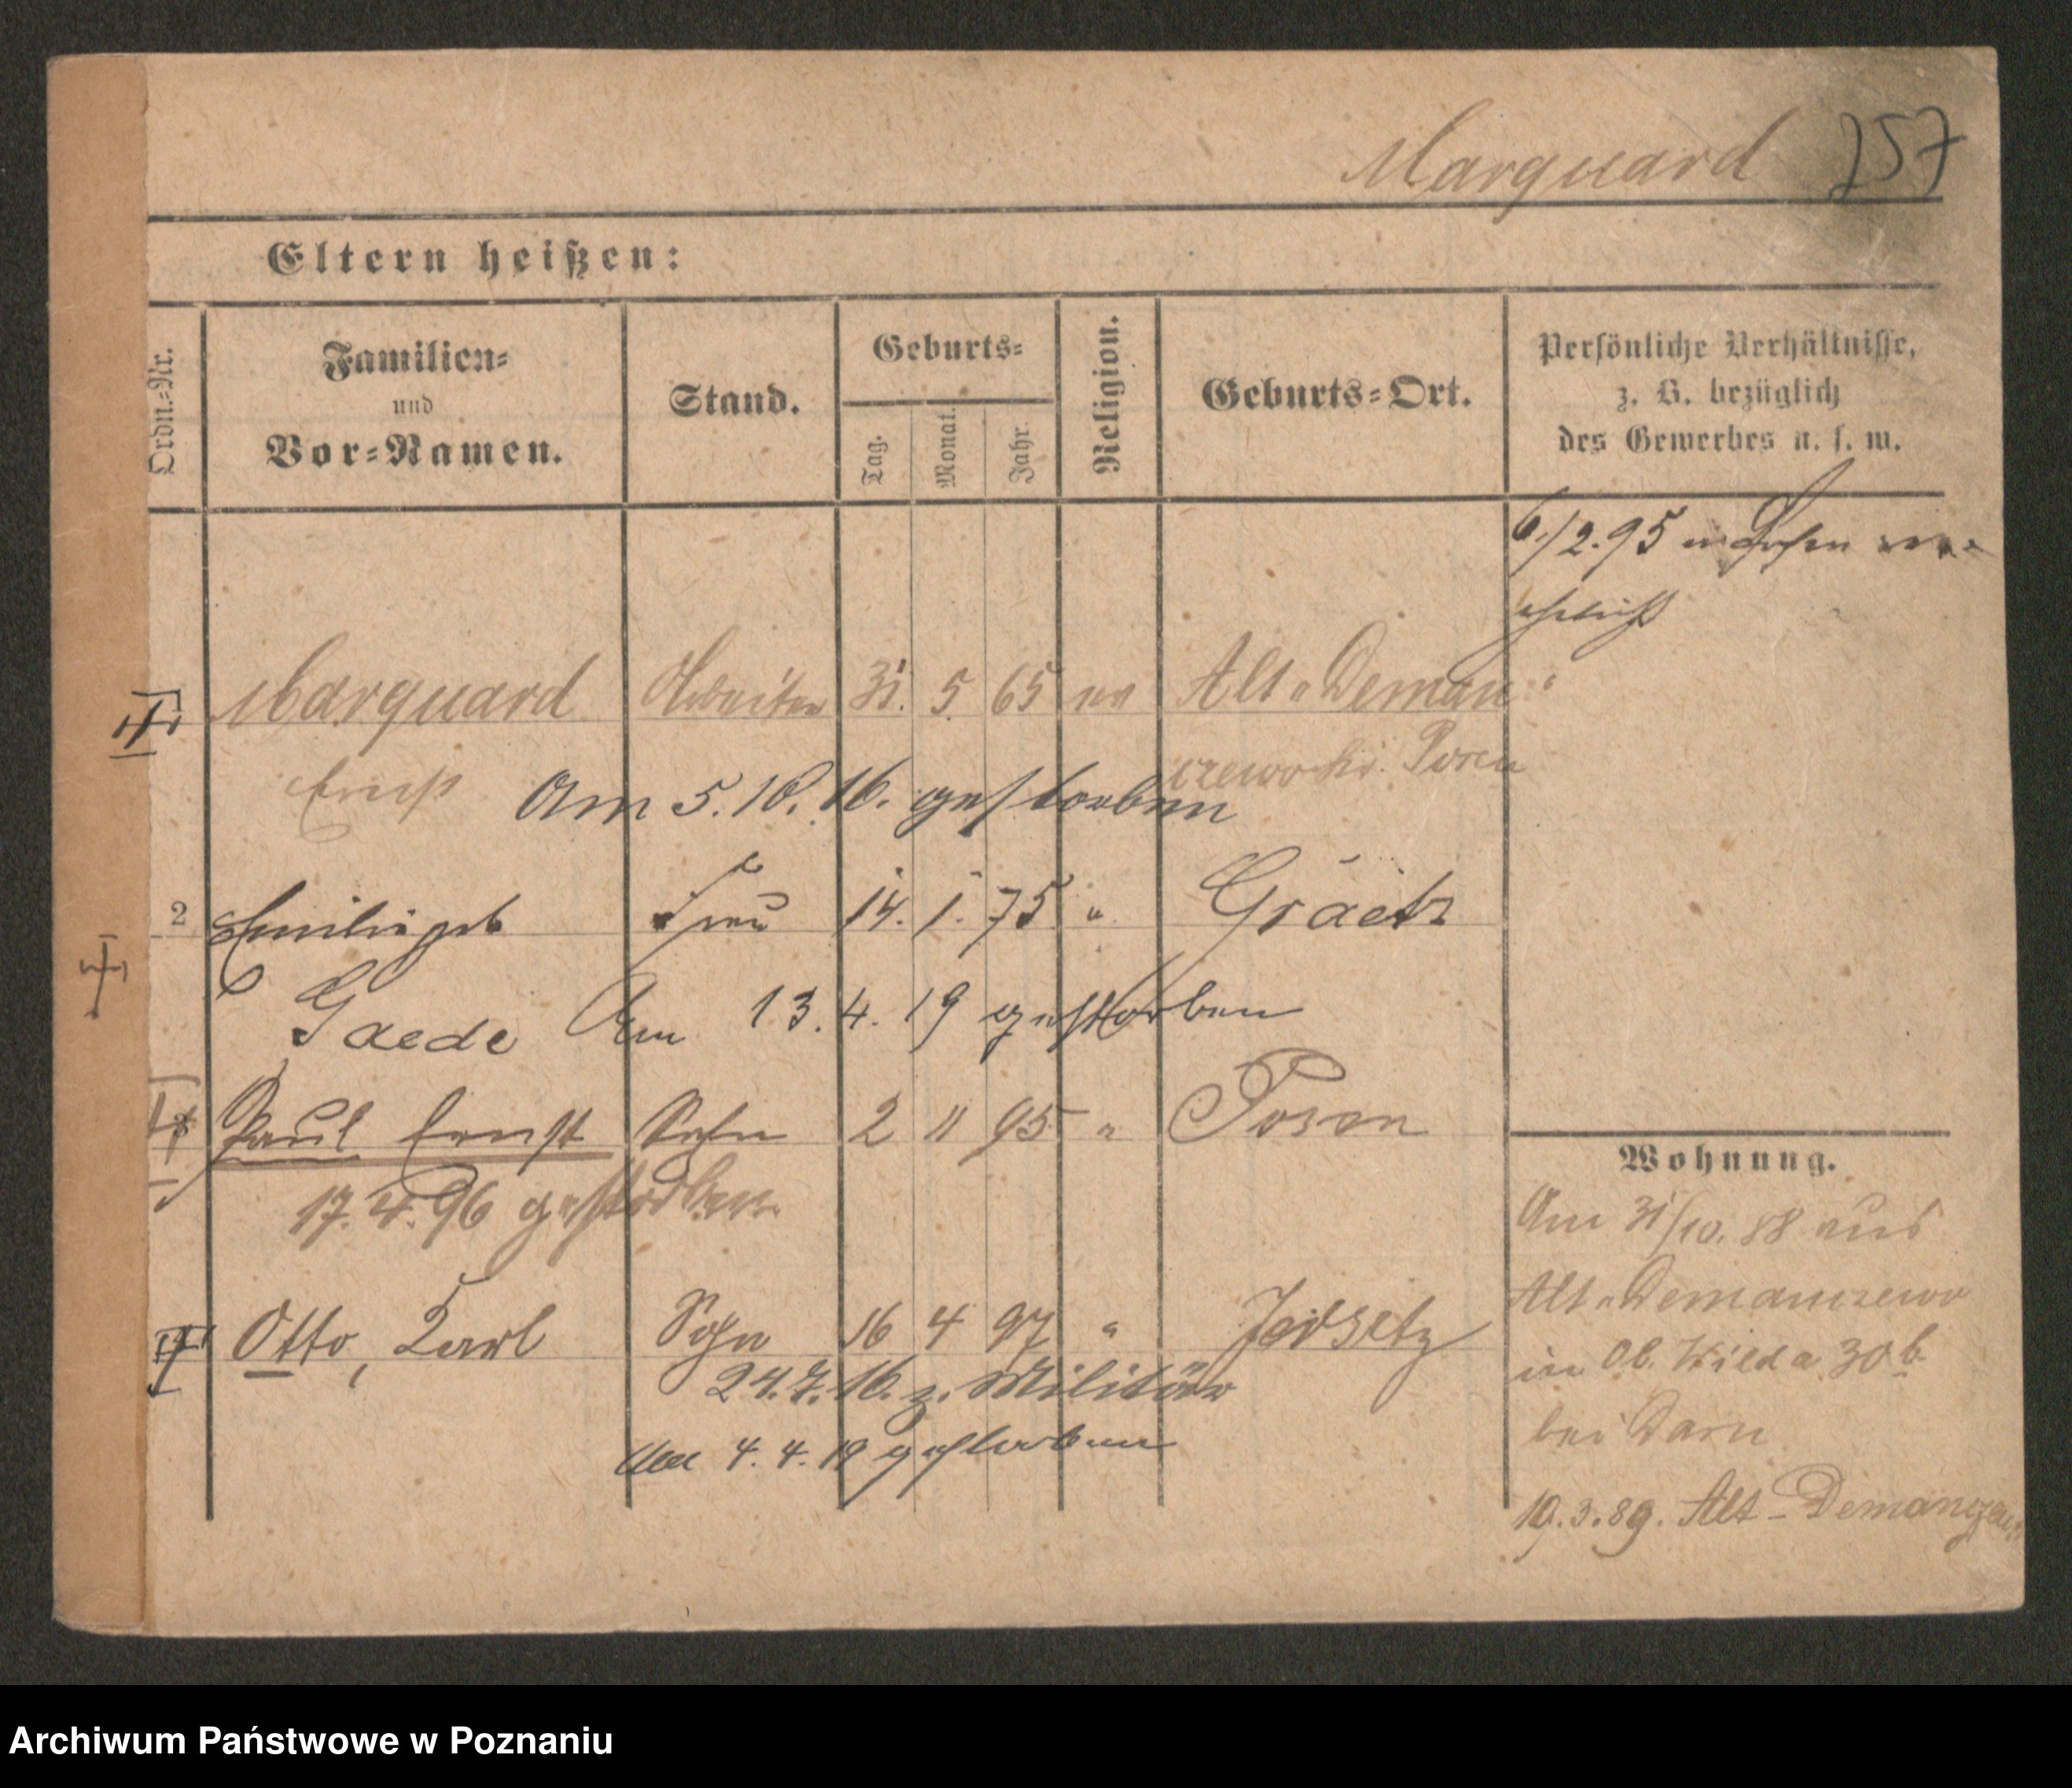 Marquard 257
Eltern heißen:
Ordn.-Nr.
Familien-
und
Vor-Namen.
Stand.
Geburts-
Tag.
Monat.
Jahr.
Religion.
Geburts-Ort.
Persönliche Verhältnisse,
z. B. bezüglich
des Gewerbes u. s. w.
6./2.95 in Posen ver-
ehelicht
Marquard Arbeiter 31. 5. 65 ev Alt-Deman-
Ernst czewo Kr. Posen
Am 5.10.16. gestorben
2 Emilie geb Frau 14. 1. 75 " Graetz
Gaede Am 13.4.19 gestorben
Paul Ernst Sohn 2 11 95 " Posen
17.4.96 gestorben
Otto, Karl Sohn 16 4 97 " Jersetz
24.7.16. z. Militär
Am 4.4.19 gestorben
Wohnung.
Am 31/10. 88 aus
Alt-Demanczewo
in Ob. Wilda 30b.
bei
10.3.89. Alt-Demanczewo
Archiwum Państwowe w Poznaniu